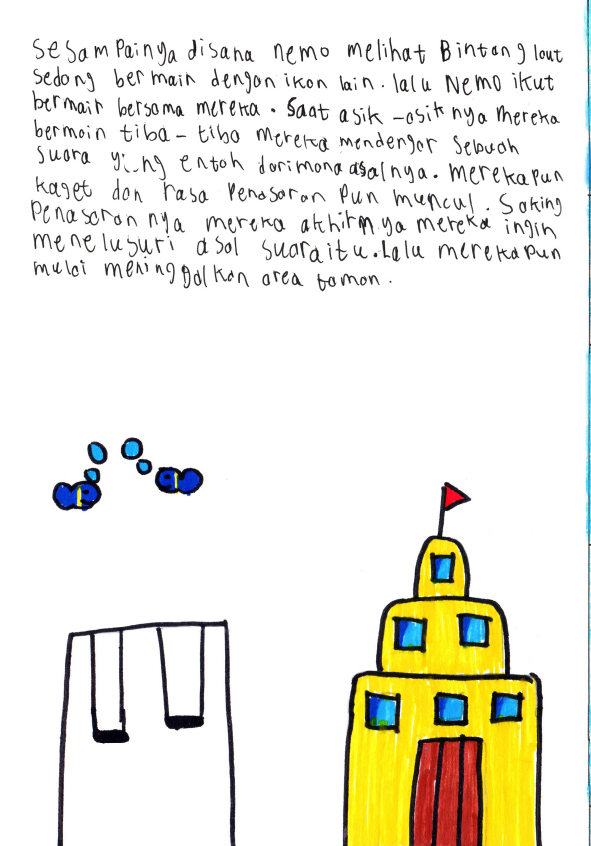 Sesampainya disana nemo melihat Bintang laut
sedang bermain dengan ikan lain. lalu Nemo ikut
bermain bersama mereka. Saat asik-asiknya mereka
bermain tiba-tiba mereka mendengar sebuah
suara yang entah darimana asalnya. merekapun
kaget dan rasa Penasaran Pun muncul. Saking
Penasarannya mereka akhirnya mereka ingin
menelusuri asal suara itu. Lalu merekapun
mulai meninggalkan area taman.